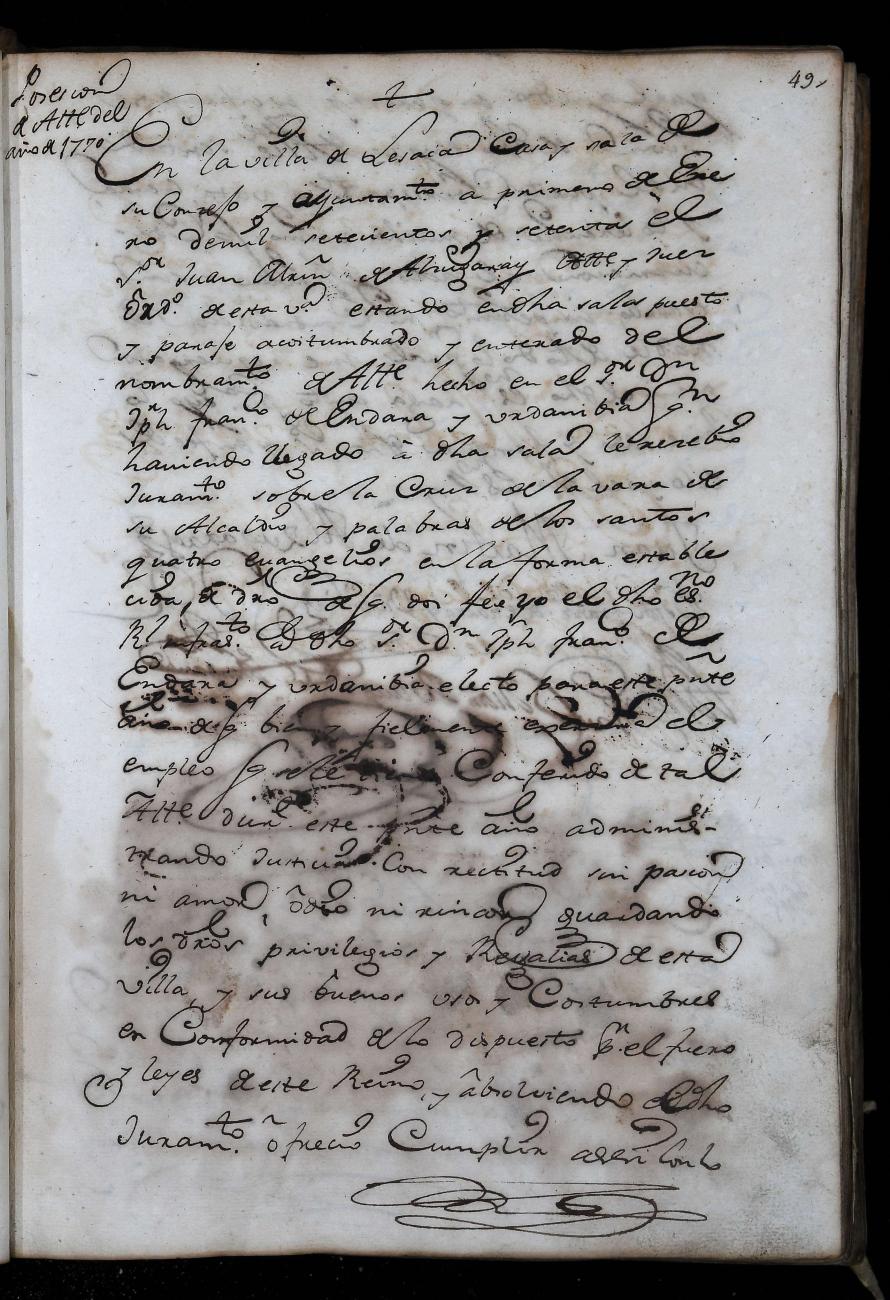 49,
Posesion
de Alle del
año de 1770.
En la villa de Lesaca Casa y sala de
su Consejo y ayuntam.to a primero de Ene
ro demil setecientos y setenta el
S.or Juan de Alle y Juez
Ord.o de esta v.a estando en dha sala puesto
y paraje acoitumbrado y enterado del
nombram.to de Alle hecho en el s.or Dn
Jph fran.co de Endara y vrdanibia q.n
haviendo llegado à dha sala le recebio
Juram.to sobre la Cruz de la vara de
su Alcaldia y palabras de los santos
quatro euangelios en la forma estable
cida de dro de q. doi fee yo el dho es.no
Rl infras.to dho s.or Dn Jph fran.co de
Endara y vrdanibia electo para este pnte
año de q bien y fielmente el
empleo q se le tiene Conferido de tal
Alle dur.e este pnte año adminis-
trando Justicia Con rectitud sin pasion
ni amor òdio ni rincor guardando
los dros privilegios y Regalias de esta
villa, y sus buenos usos y Costumbres
en Conformidad de lo dispuesto p.r el fuero
y leyes de este Reino, y àbsolviendo dho
Juram.to òfrecio Cumplir